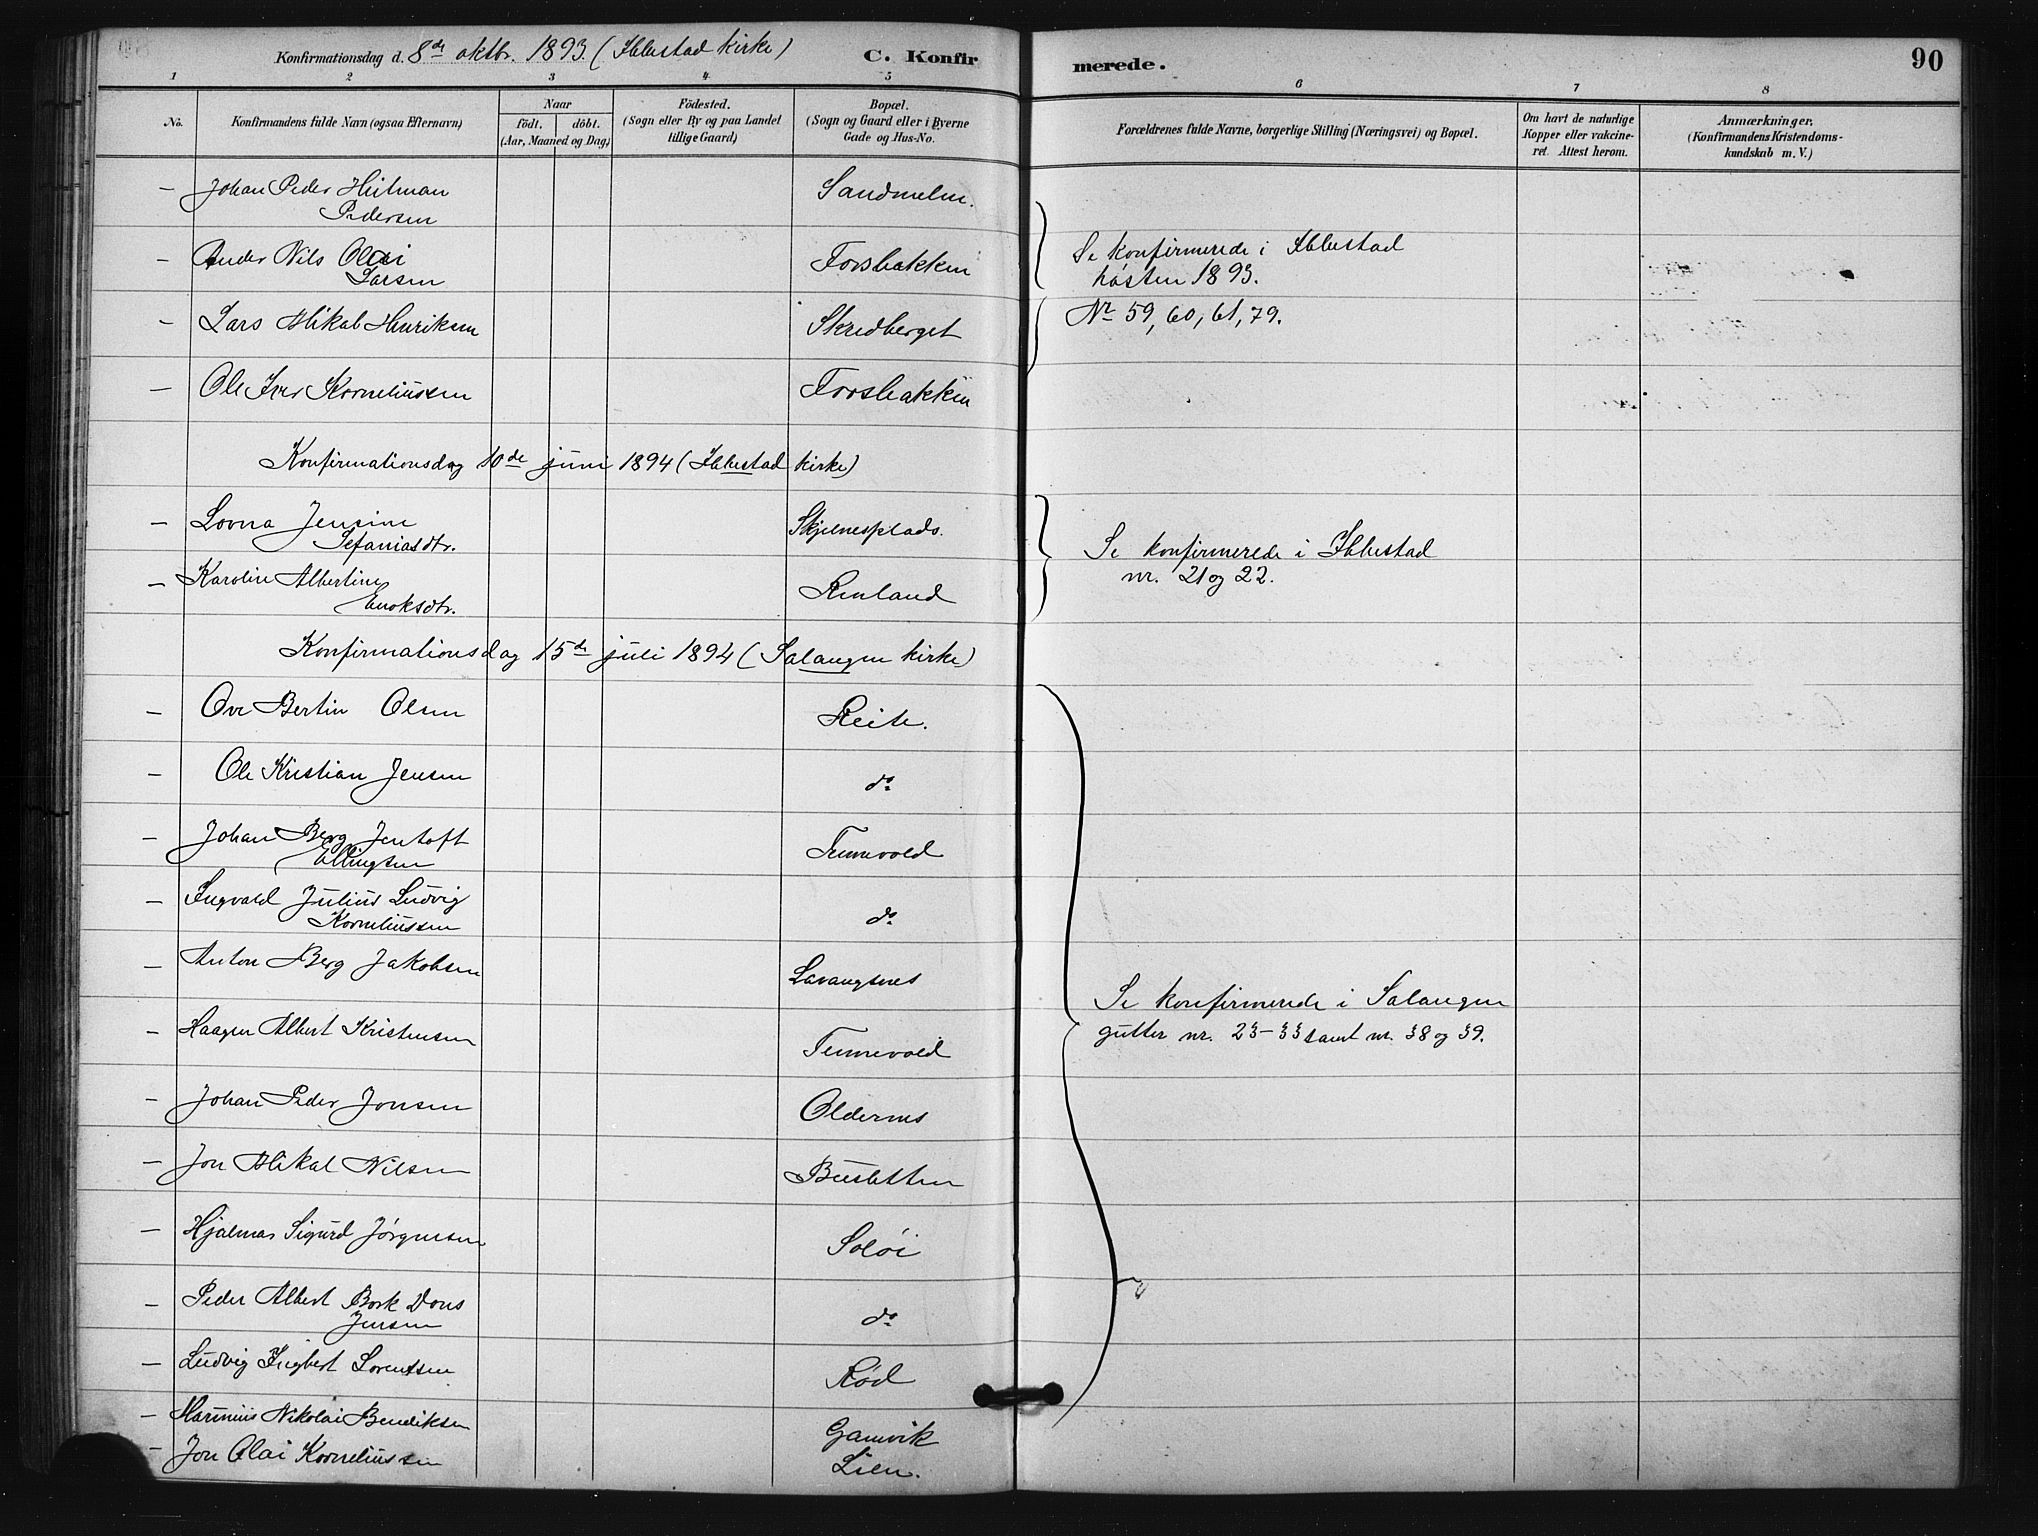 Konfirmationsdag d. 8de oktbr. 1893. (Ibbestad kirke) C. Konfirmerede. 90
1 2 3 4 5 6 7 8
No. Konfirmandens fulde Navn (ogsaa Efternavn) Naar födt. döbt. (Aar, Maaned og Dag) Födested. (Sogn eller By og paa Landet tillige Gaard) Bopæl. (Sogn og Gaard eller i Byerne Gade og Hus-No. Forældrenes fulde Navne, borgerlige Stilling (Næringsvei) og Bopæl. Om havt de naturlige Kopper eller vakcineret. Attest herom. Anmærkninger. (Konfirmandens Kristendomskundskab m. V.)
– Johan Peder Hilman Sandmelen.
Pedersen
– Peder Nils Olai Forsbakken Se konfirmerede i Ibbestad
Larsen høsten 1893.
– Lars Mikal Henriksen Skredberget Nr. 59, 60, 61, 79.
– Ole Iver Korneliussen Forsbakken
Konfirmationsdag 10de juni 1894 (Ibbestad kirke)
– Lovna Jensine Skjelnesplads.
Sefaniasdtr. Se konfirmerede i Ibbestad
– Karolin Albertine nr. 21 og 22.
Enoksdtr. Renland
Konfirmationsdag 15de juli 1894 (Salangen kirke)
– Ove Bertin Olsen Reite.
– Ole Kristian Jensen do
– Johan Berg Jentoft Tennevold
Ellingsen
– Ingvald Julius Ludvig
Korneliussen do
– Anton Berg Jakobsen Lavangsnes
Se konfirmerede i Salangen
– Haagen Albert Kristensen Tennevold gutter nr. 23–33 samt nr. 38 og 39.
– Johan Peder Jonsen Oldernes
– Jon Mikal Nilsen Busletten
– Hjalmar Sigurd Jørgensen Soløi
– Peder Albert Bork Dons
Jensen do
– Ludvig Ingbert Lorentsen Rød
– Marinius Nikolai Bendiksen Gamvik
– Jon Olai Korneliussen Lien.